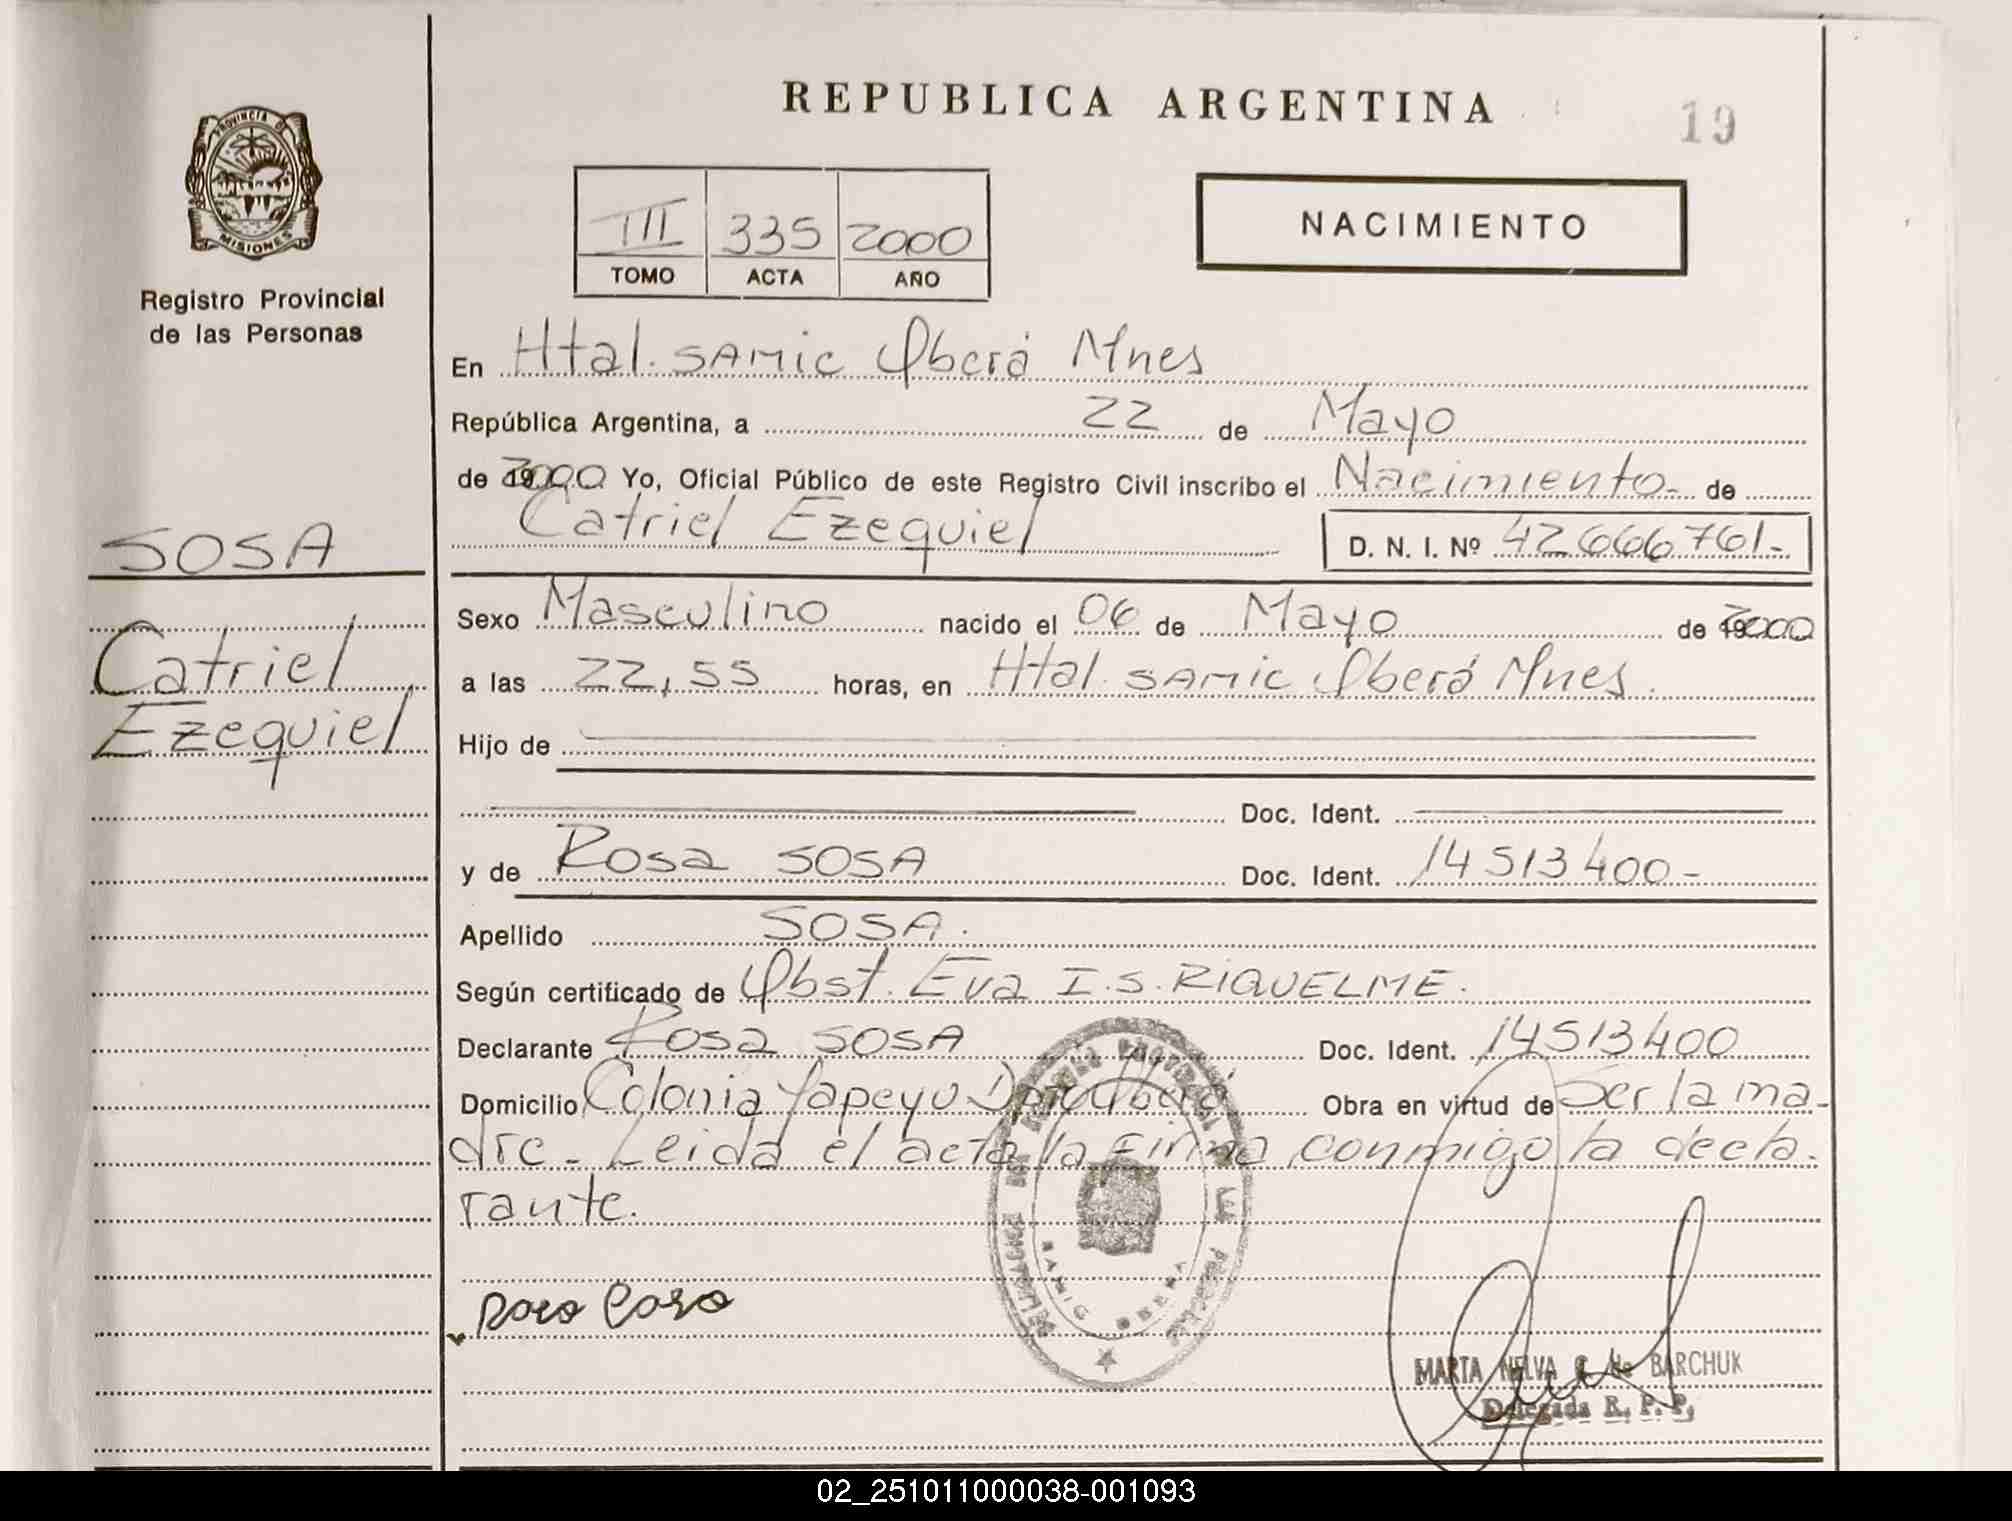 REPUBLICA ARGENTINA
19
PROVINCIA DE
MISIONES
Registro Provincial
de las Personas
III 335 2000
TOMO ACTA AÑO
NACIMIENTO
En Htal. SAMIC Oberá Mnes
República Argentina, a 22 de Mayo
de 2000 Yo, Oficial Público de este Registro Civil inscribo el Nacimiento- de
Catriel Ezequiel D. N. I. Nº 42666761-
SOSA
Catriel
Ezequiel
Sexo Masculino nacido el 06 de Mayo de 2000
a las 22,55 horas, en Htal. SAMIC Oberá Mnes.
Hijo de
Doc. Ident.
y de Rosa SOSA Doc. Ident. 14513400-
Apellido SOSA.
Según certificado de Obst. Eva I.S. RIQUELME.
Declarante Rosa SOSA Doc. Ident. 14513400
Domicilio Colonia Yapeyu Dpto Oberá Obra en virtud de Ser la ma-
dre- Leida el acta la firma conmigo la decla-
rante.
SAMIC OBERA
MARTA NELVA de BARCHUK
Delegada R. P. P.
02_251011000038-001093